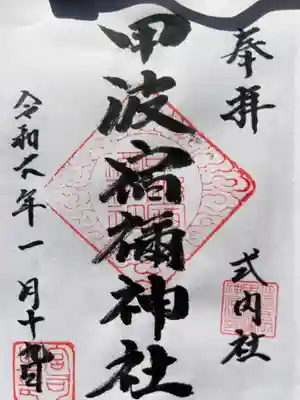 奉拝
式内社
甲波宿禰神社
令和六年一月十九日